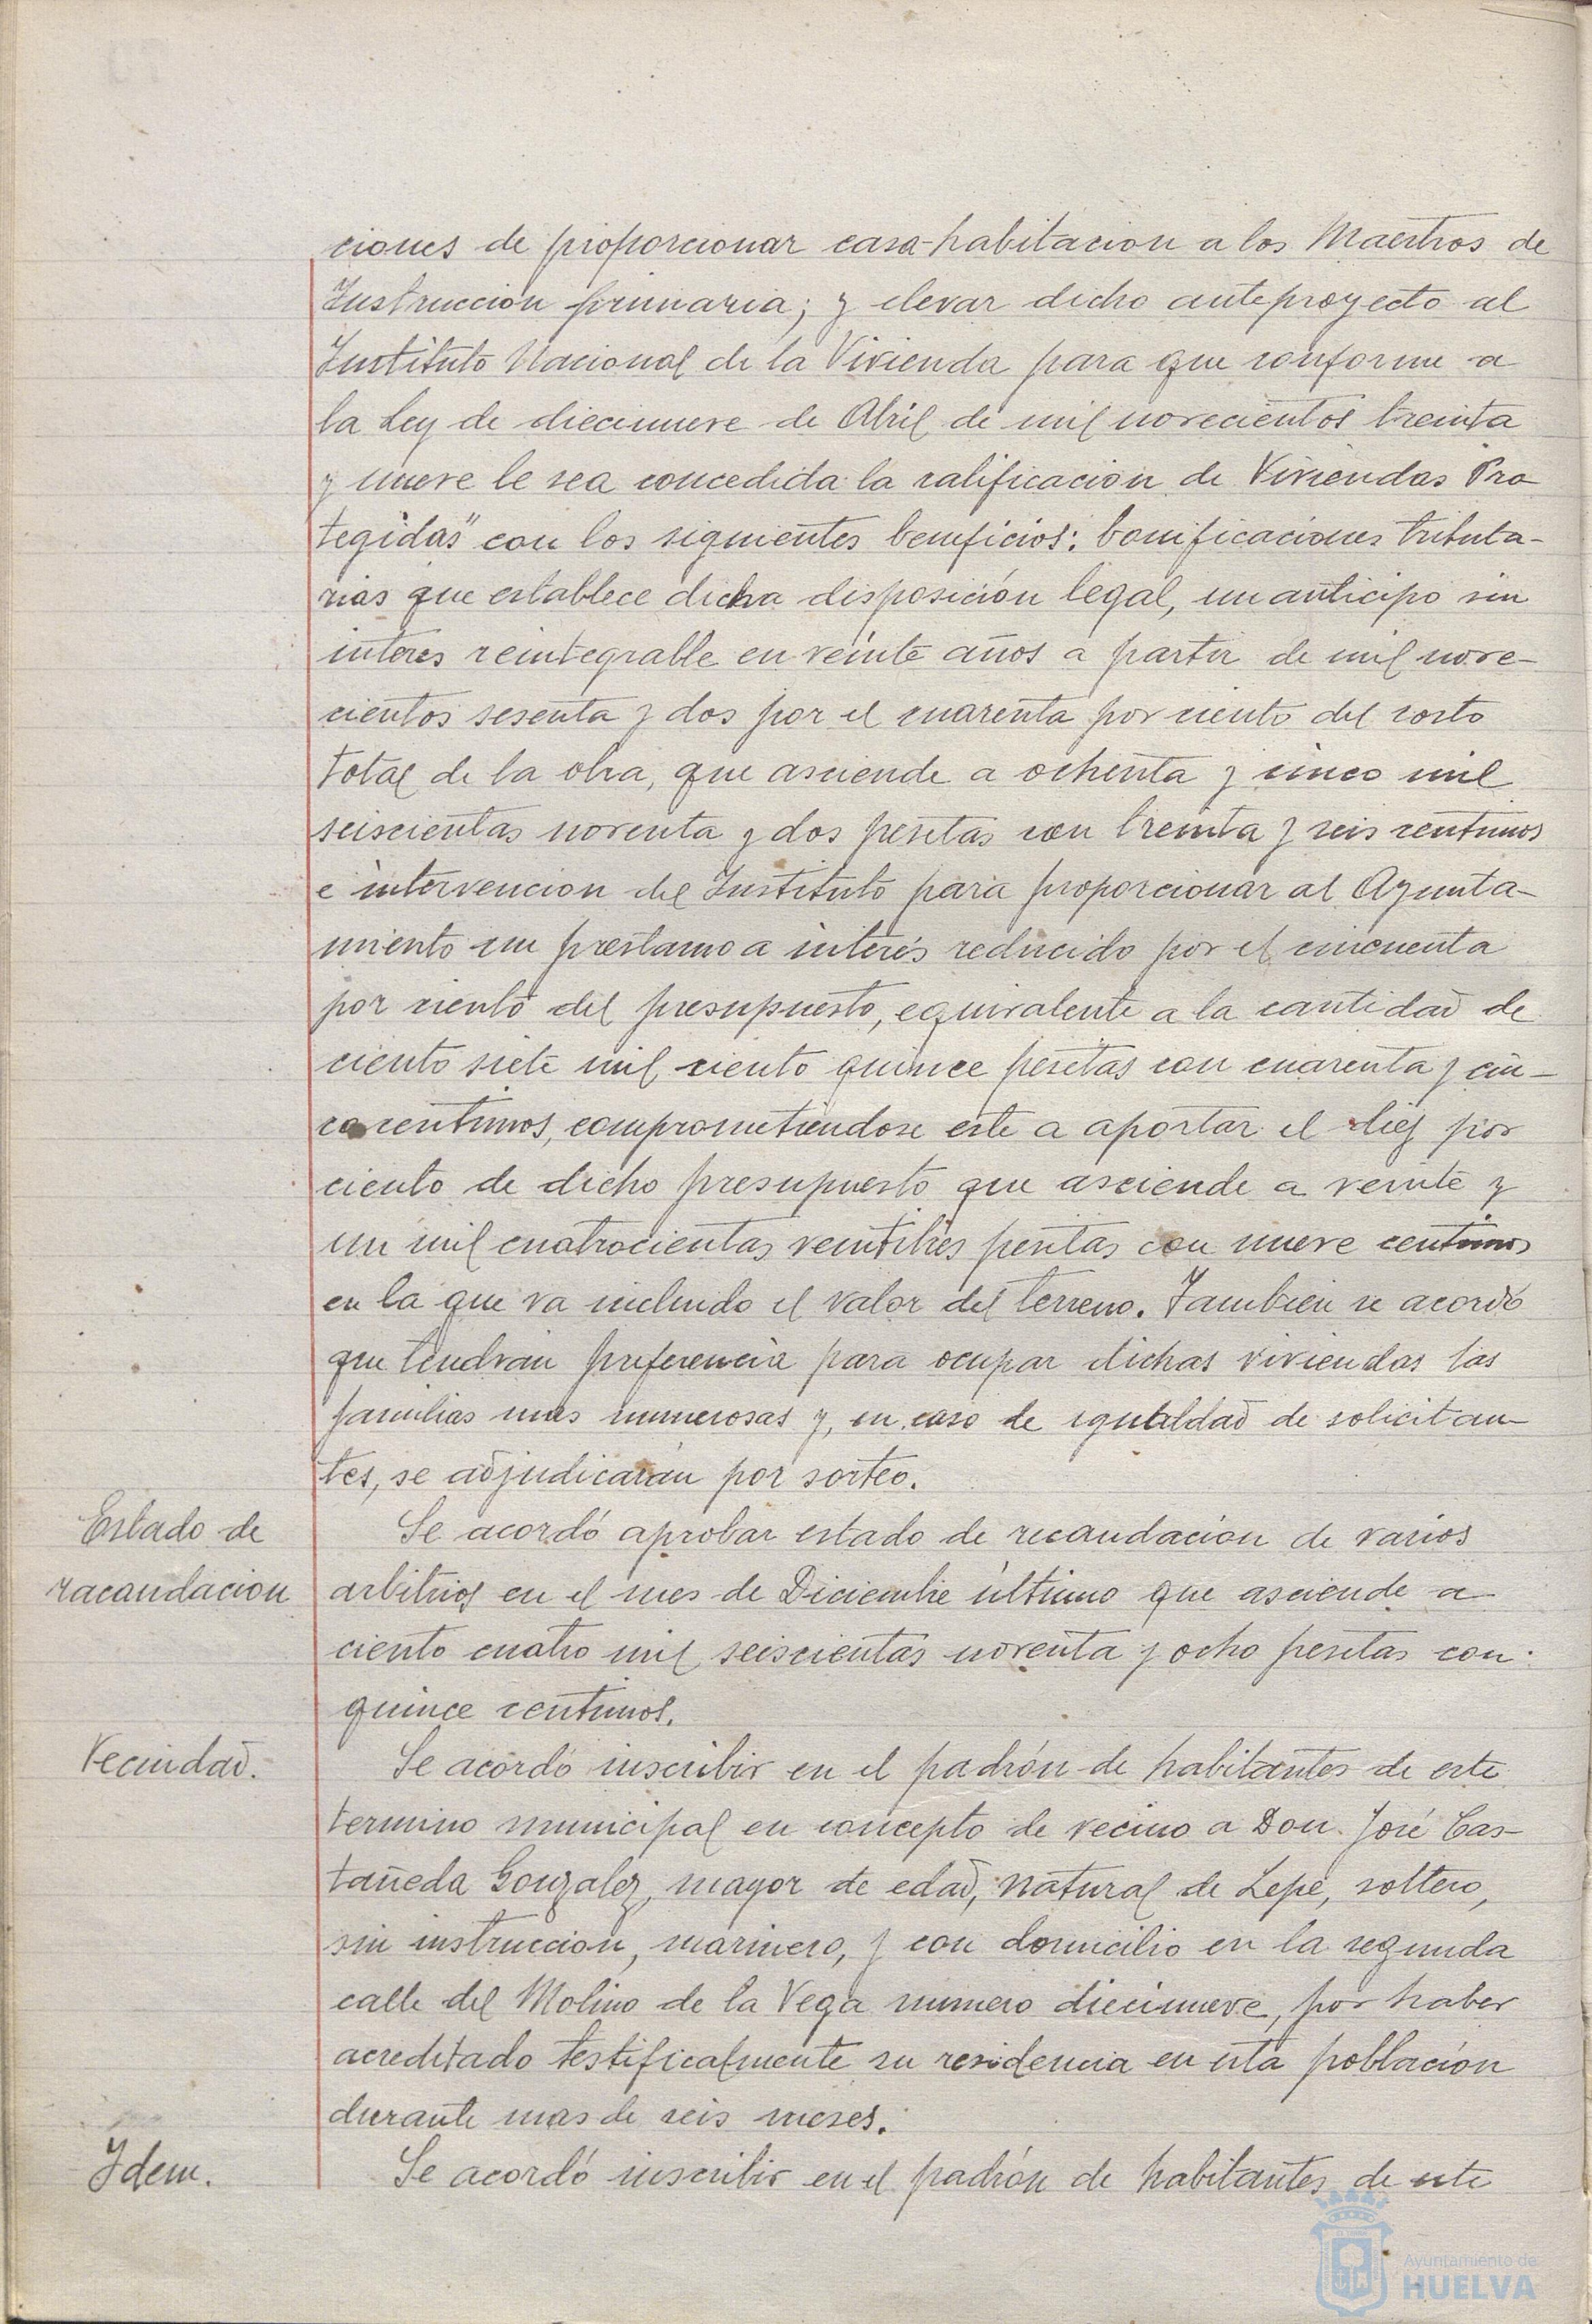 ciones de proporcionar casa-habitacion a los Maestros de
Instrucción primaria; y elevar dicho anteproyecto al
Instituto Nacional de la Vivienda para que conforme a
la Ley de diecinueve de Abril de mil novecientos treinta
y nueve le sea concedida la calificacion de Viviendas Pro
tegidas" con los siguientes beneficios: bonificaciones tributa-
rias que establece dicha disposición legal, un anticipo sin
interes reintegrable en veinte años a partir de mil nove-
cientos sesenta y dos por el cuarenta por ciento del costo
total de la obra, que asciende a ochenta y cinco mil
seiscientas noventa y dos pesetas con treinta y seis centimos
e intervencion del Instituto para proporcionar al Ayunta-
miento un prestamo a interés reducido por el cincuenta
por ciento del presupuesto, equivalente a la cantidad de
ciento siete mil ciento quince pesetas con cuarenta y cin-
co centimos, comprometiendose este a aportar el diez por
ciento de dicho presupuesto que asciende a veinte y
un mil cuatrocientas veintitres pesetas con nueve centimos
en la que va incluido el valor del terreno. Tambien se acordó
que tendran preferencia para ocupar dichas viviendas las
familias mas numerosas y, en caso de igualdad de solicitan-
tes, se adjudicarán por sorteo.
Estado de
racaudacion
Se acordó aprobar estado de recaudacion de varios
arbitrios en el mes de Diciembre último que asciende a
ciento cuatro mil seiscientas noventa y ocho pesetas con
quince centimos.
Vecindad.
Se acordó inscribir en el padrón de habitantes de este
termino municipal en concepto de vecino a Don José Cas-
tañeda Gonzalez, mayor de edad, natural de Lepe, soltero,
sin instruccion, marinero, y con domicilio en la segunda
calle del Molino de la Vega numero diecinueve, por haber
acreditado testificalmente su residencia en esta población
durante mas de seis meses.
Idem.
Se acordó inscribir en el padrón de habitantes de este
Ayuntamiento de
HUELVA